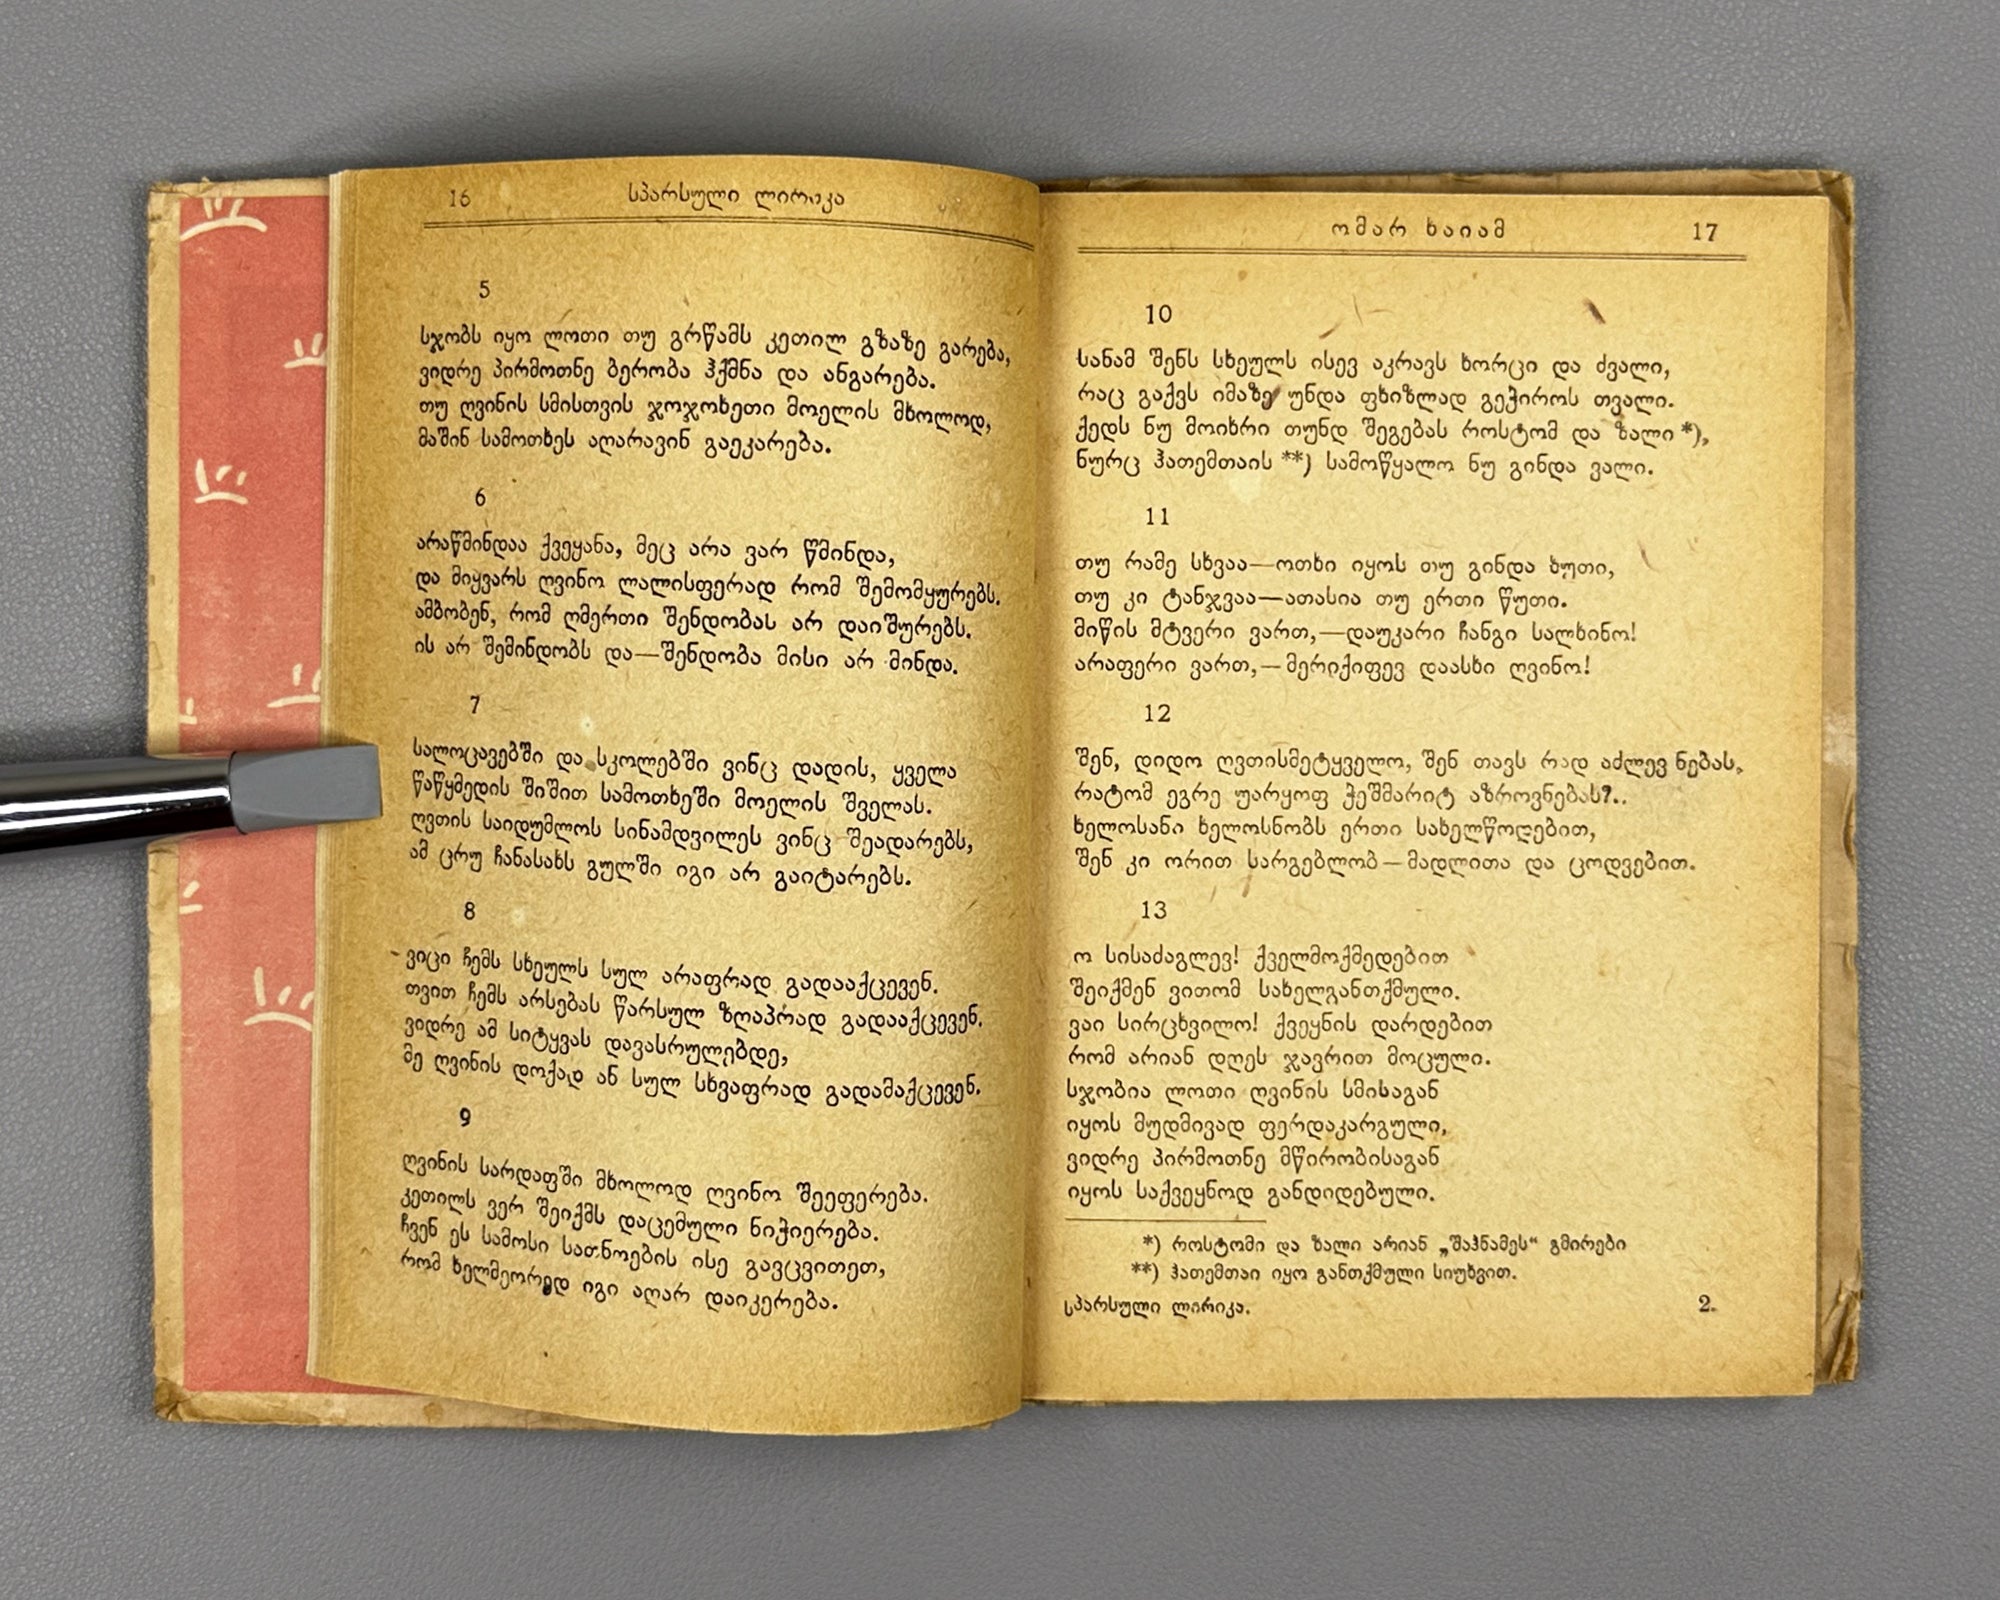 16 სპარსული ლირიკა
5
სჯობს იყო ლოთი თუ გრწამს კეთილ გზაზე გარება,
ვიდრე პირმოთნე ბერობა ჰქმნა და ანგარება.
თუ ღვინოს სმისთვის ჯოჯოხეთი მოელის მხოლოდ,
მაშინ სამოთხეს აღარავინ გაეკარება.
6
არაწმინდაა ქვეყანა, მეც არა ვარ წმინდა,
და მიყვარს ღვინო ლალისფერად რომ შემომყურებს.
ამბობენ, რომ ღმერთი შენდობას არ დაიშურებს.
ის არ შემინდობს და—შენდობა მისი არ მინდა.
7
სალოცავებში და სკოლებში ვინც დადის, ყველა
წაწყმედის შიშით სამოთხეში მოელის შველას.
ღვთის საიდუმლოს სინამდვილეს ვინც შეადარებს,
ამ ცრუ ჩანასახს გულში იგი არ გაიტარებს.
8
ვიცი ჩემს სხეულს სულ არაფრად გადააქცევენ.
თვით ჩემს არსებას წარსულ ზღაპრად გადააქცევენ.
ვიდრე ამ სიტყვას დავასრულებდე,
მე ღვინის დოქად ან სულ სხვაფრად გადამაქცევენ.
9
ღვინის სარდაფში მხოლოდ ღვინო შეეფერება.
კეთილს ვერ შეიქმს დაცემული ნიჭიერება.
ჩვენ ეს სამოსი სათნოების ისე გავცვითეთ,
რომ ხელმეორედ იგი აღარ დაიკერება.
ომარ ხაიამ 17
10
სანამ შენს სხეულს ისევ აკრავს ხორცი და ძვალი,
რაც გაქვს იმაზე უნდა ფხიზლად გეჭიროს თვალი.
ქედს ნუ მოიხრი თუნდ შეგებას როსტომ და ზალი *),
ნურც ჰათემთაის **) სამოწყალო ნუ გინდა ვალი.
11
თუ რამე სხვაა—ოთხი იყოს თუ გინდა ხუთი,
თუ კი ტანჯვაა—ათასია თუ ერთი წუთი.
მიწის მტვერი ვართ,—დაუკარი ჩანგი სალხინო!
არაფერი ვართ,—მერიქიფევ დაასხი ღვინო!
12
შენ, დიდო ღვთისმეტყველო, შენ თავს რად აძლევ ნებას,
რატომ ეგრე უარყოფ ჭეშმარიტ აზროვნებას?..
ხელოსანი ხელოსნობს ერთი სახელწოდებით,
შენ კი ორით სარგებლობ—მადლითა და ცოდვებით.
13
ო სისაძაგლევ! ქველმოქმედებით
შეიქმენ ვითომ სახელგანთქმული.
ვაი სირცხვილო! ქვეყნის დარდებით
რომ არიან დღეს ჯავრით მოცული.
სჯობია ლოთი ღვინის სმისაგან
იყოს მუდმივად ფერდაკარგული,
ვიდრე პირმოთნე მწირობისაგან
იყოს საქვეყნოდ განდიდებული.
*) როსტომი და ზალი არიან „შაჰნამეს“ გმირები
**) ჰათემთაი იყო განთქმული სიუხვით.
სპარსული ლირიკა. 2.